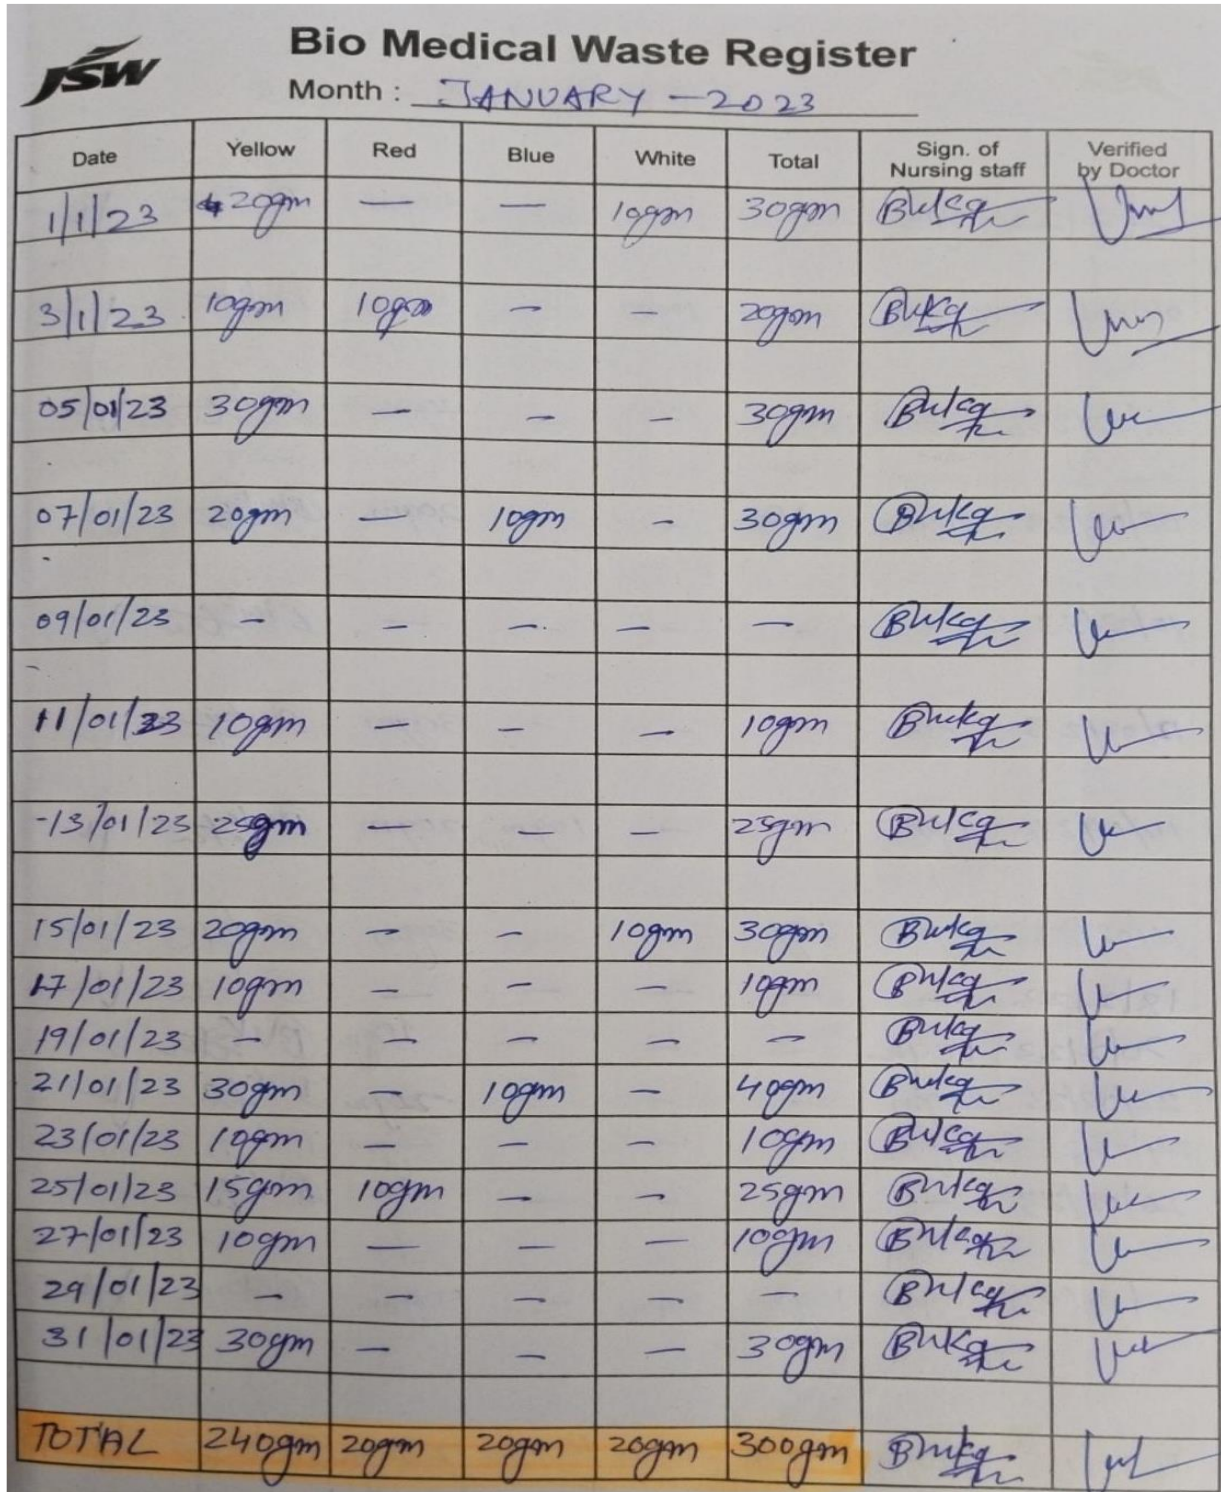 JSW
Bio Medical Waste Register
Month : JANUARY - 2023
Date Yellow Red Blue White Total Sign. of Nursing staff Verified by Doctor
1/1/23 20gm — — 10gm 30gm
3/1/23 10gm 10gm - - 20gm
05/01/23 30gm — - - 30gm
07/01/23 20gm — 10gm - 30gm
09/01/23 - - - - -
11/01/23 10gm - - - 10gm
13/01/23 25gm — - - 25gm
15/01/23 20gm - - 10gm 30gm
17/01/23 10gm - - - 10gm
19/01/23 - - - - -
21/01/23 30gm - 10gm - 40gm
23/01/23 10gm - - - 10gm
25/01/23 15gm 10gm - - 25gm
27/01/23 10gm — - - 10gm
29/01/23 - - - - -
31/01/23 30gm - - - 30gm
TOTAL 240gm 20gm 20gm 20gm 300gm